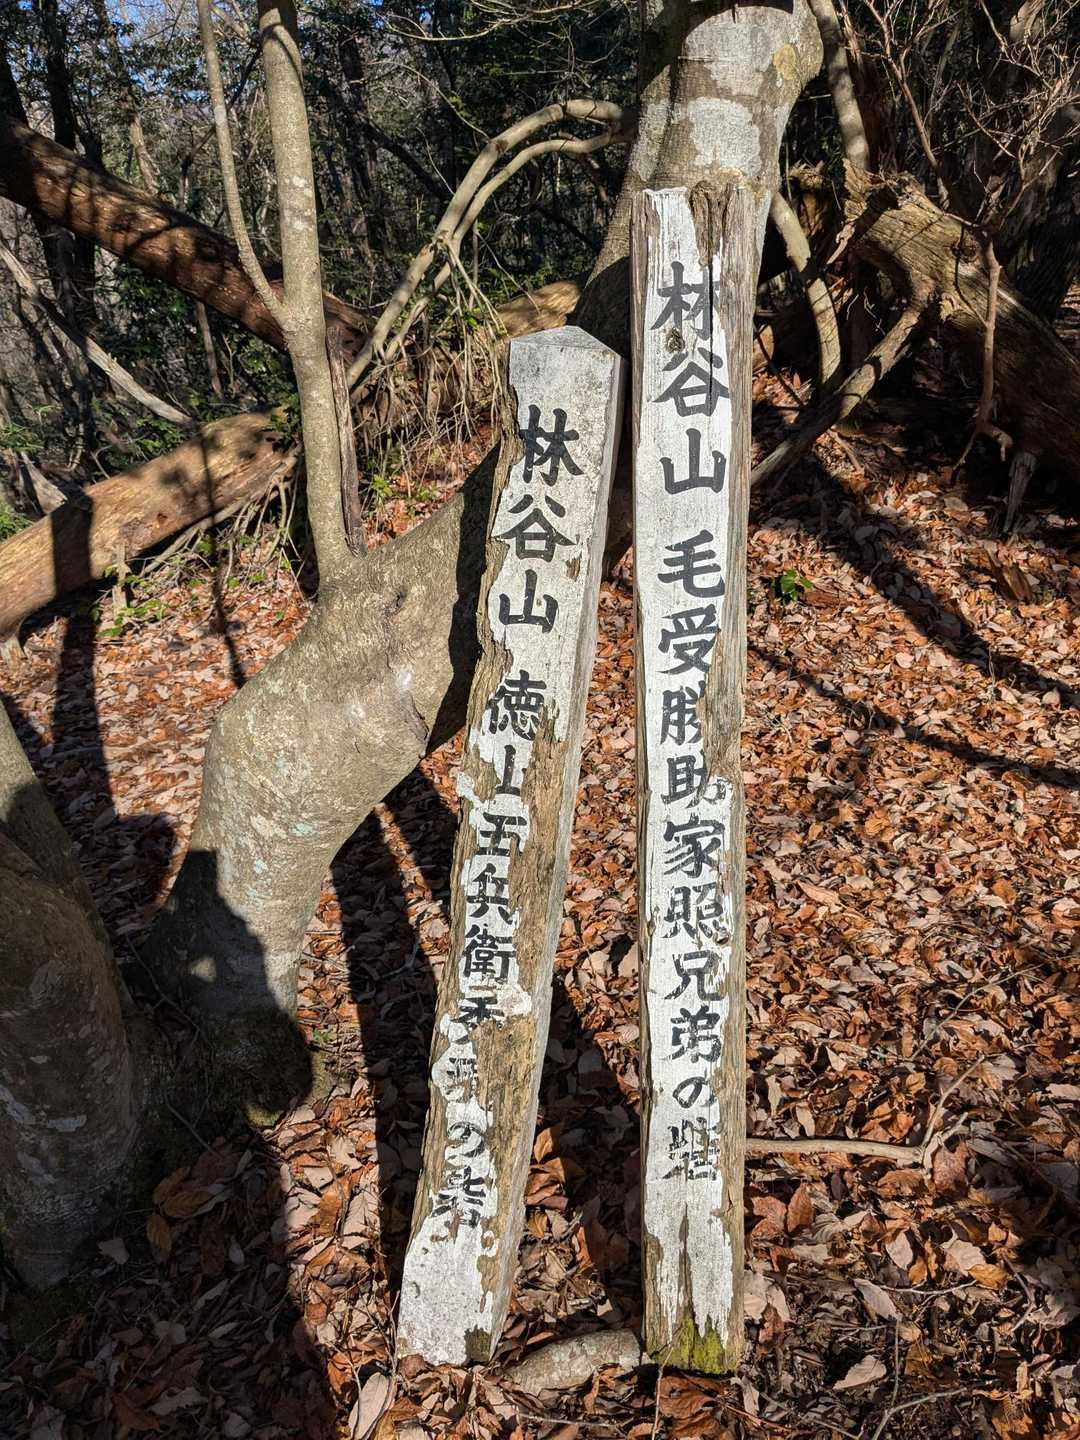 林谷山 毛受勝助家照兄弟の砦
林谷山 徳山五兵衛秀の砦